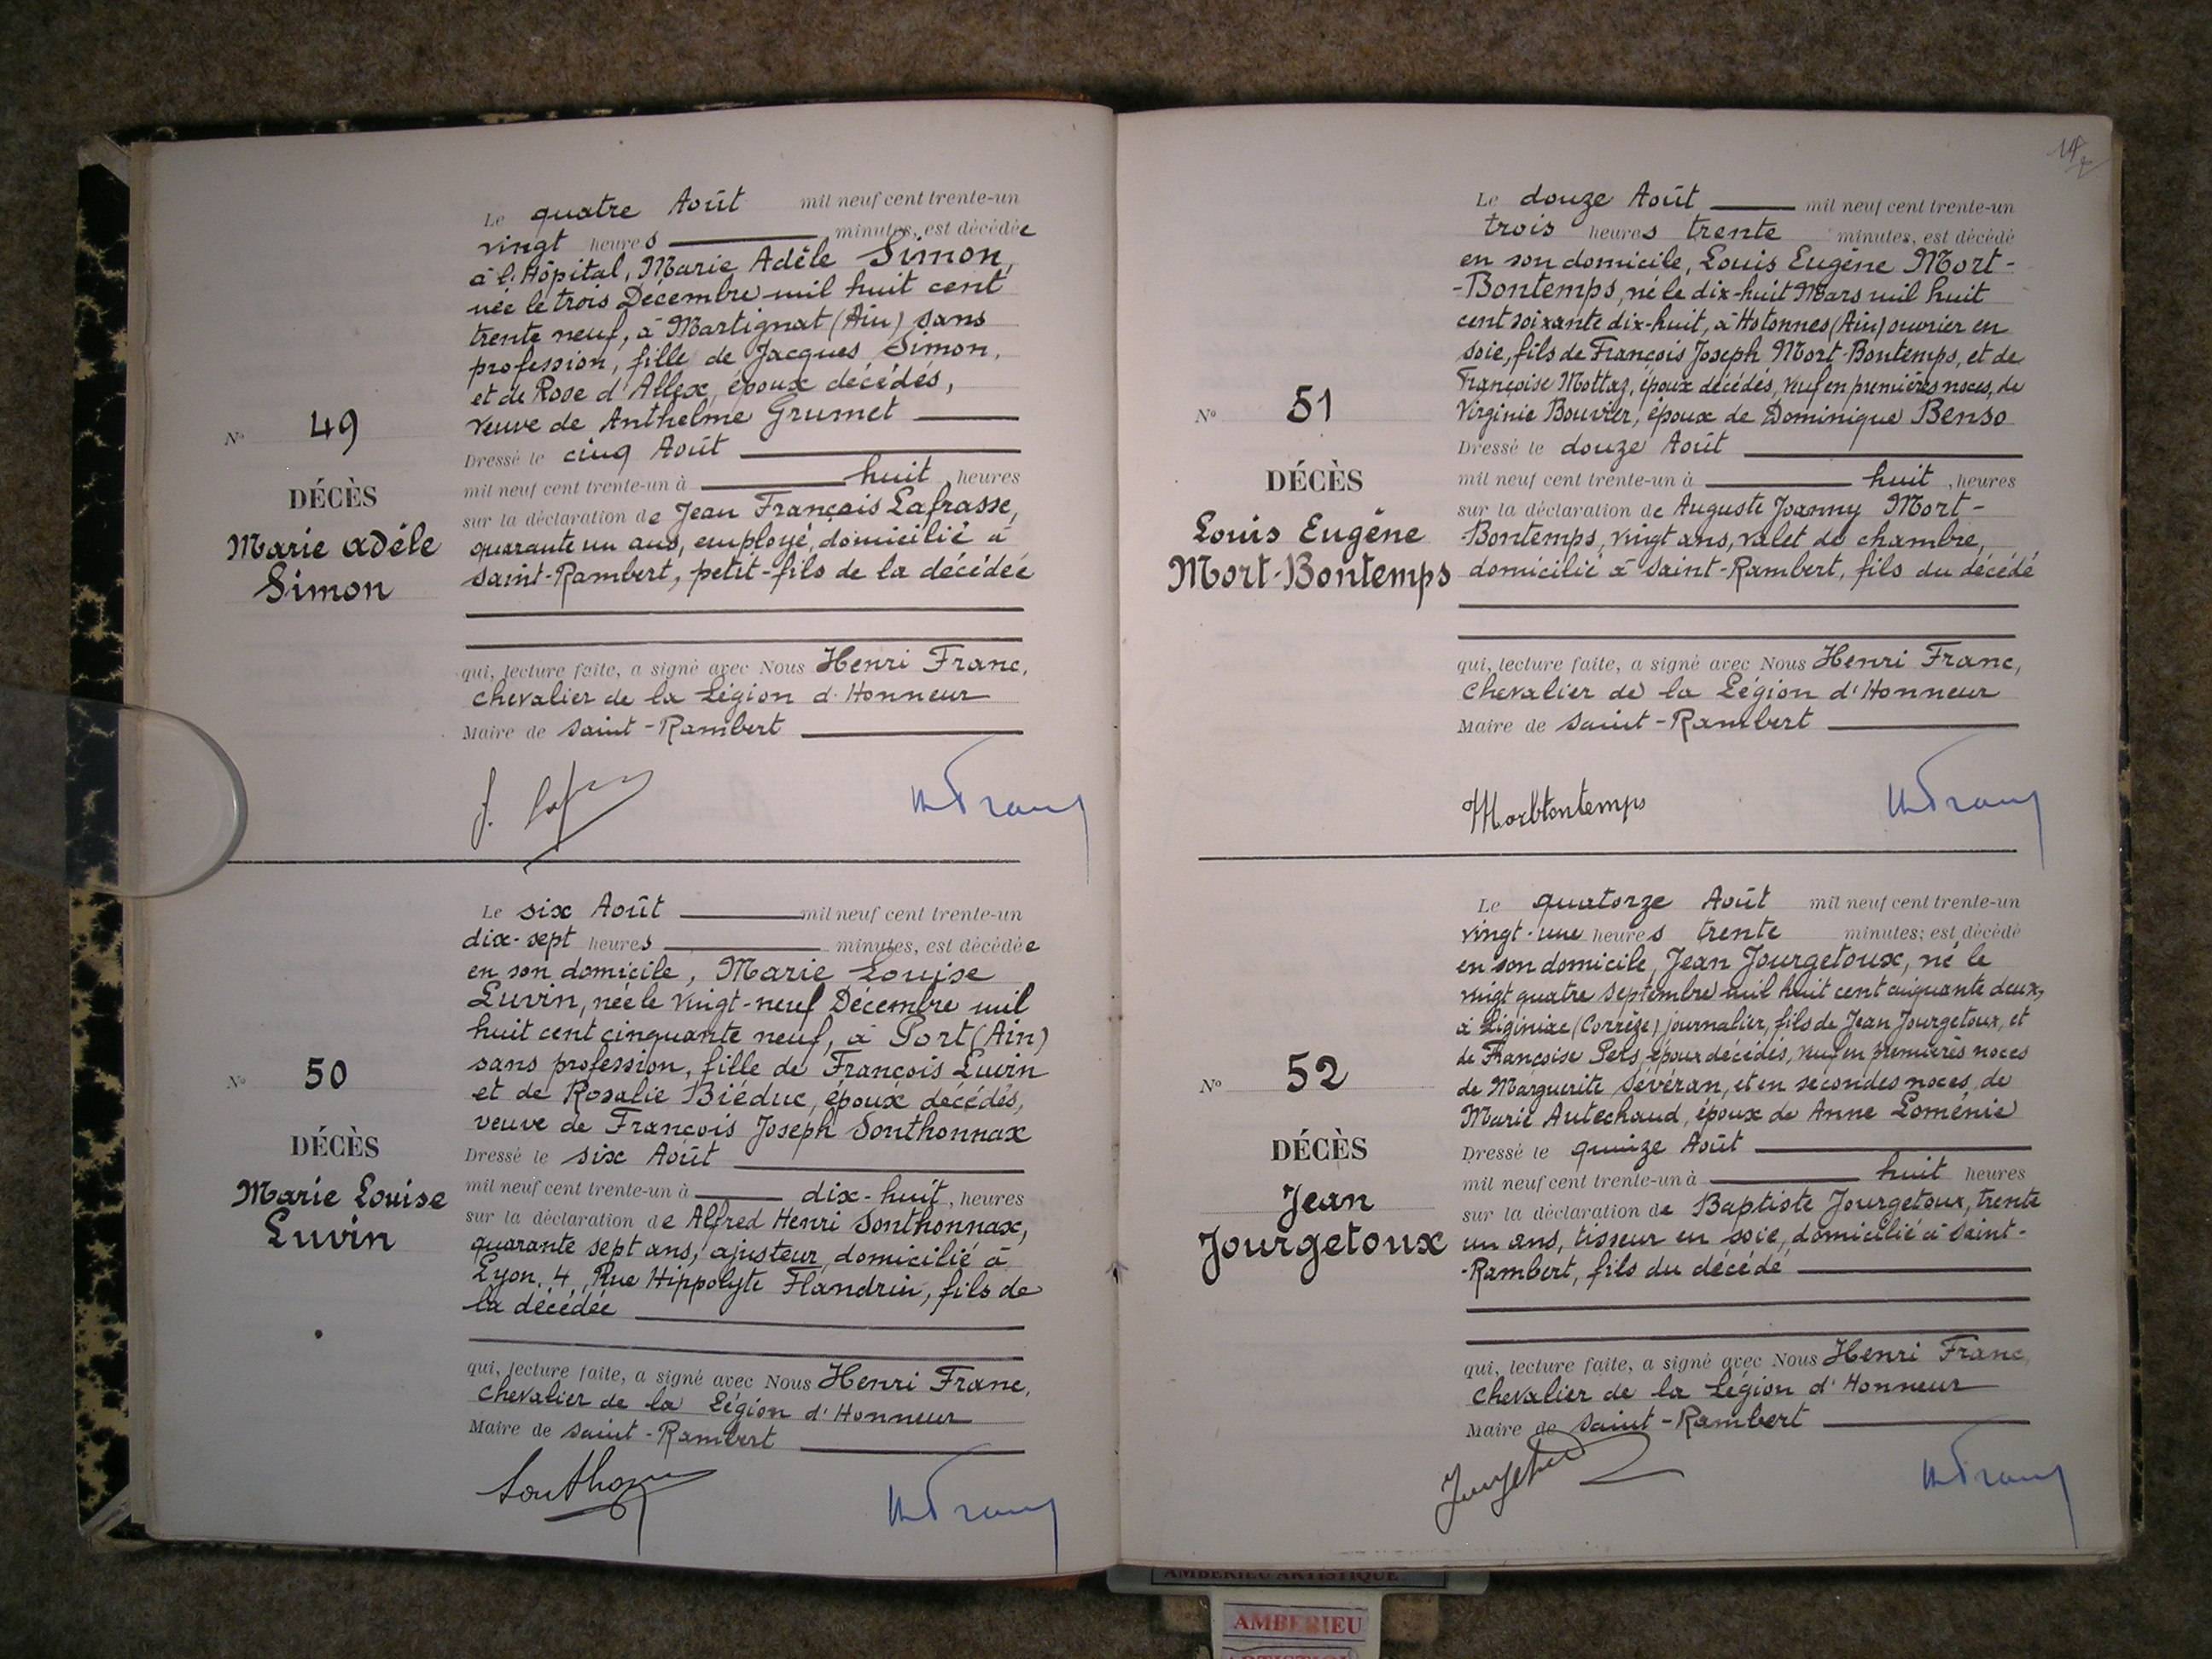 Le quatre Août mil neuf cent trente-un
vingt heures minutes, est décédée
à l'Hôpital, Marie Adèle Simon,
née le trois Décembre mil huit cent
trente neuf, à Martignat (Ain) sans
profession, fille de Jacques Simon,
et de Rose d'Allex, époux décédés,
veuve de Anthelme Grumet
No 49
Dressé le cinq Août
mil neuf cent trente-un à huit, heures
DÉCÈS
sur la déclaration de Jean François Lafrasse,
Marie Adèle
quarante un ans, employé, domicilié à
Simon
Saint-Rambert, petit-fils de la décédée
qui, lecture faite, a signé avec Nous Henri Franc,
Chevalier de la Légion d'Honneur
Maire de Saint-Rambert
Le six Août mil neuf cent trente-un
dix-sept heures minutes, est décédée
en son domicile, Marie Louise
Luvin, née le vingt-neuf Décembre mil
huit cent cinquante neuf, à Port (Ain)
No 50
sans profession, fille de François Luvin
et de Rosalie Biéduc, époux décédés,
veuve de François Joseph Sonthonnax
DÉCÈS
Dressé le six Août
Marie Louise
mil neuf cent trente-un à dix-huit, heures
Luvin
sur la déclaration de Alfred Henri Sonthonnax,
quarante sept ans, ajusteur, domicilié à
Lyon, 4, Rue Hippolyte Flandrin, fils de
la décédée
qui, lecture faite, a signé avec Nous Henri Franc,
Chevalier de la Légion d'Honneur
Maire de Saint-Rambert
Le douze Août mil neuf cent trente-un
trois heures trente minutes, est décédé
en son domicile, Louis Eugène Mort-
-Bontemps, né le dix-huit Mars mil huit
cent soixante dix-huit, à Hotonnes (Ain) ouvrier en
soie, fils de François Joseph Mort-Bontemps, et de
Françoise Mottaz, époux décédés, veuf en premières noces, de
No 51
Virginie Bouvier, époux de Dominique Benso
Dressé le douze Août
DÉCÈS
mil neuf cent trente-un à huit, heures
sur la déclaration de Auguste Joanny Mort-
Louis Eugène
-Bontemps, vingt ans, valet de chambre,
Mort-Bontemps
domicilié à Saint-Rambert, fils du décédé
qui, lecture faite, a signé avec Nous Henri Franc,
Chevalier de la Légion d'Honneur
Maire de Saint-Rambert
Le quatorze Août mil neuf cent trente-un
vingt-une heures trente minutes, est décédé
en son domicile, Jean Jourgetoux, né le
vingt quatre Septembre mil huit cent cinquante deux,
à Liginiac (Corrèze) journalier, fils de Jean Jourgetoux, et
de Françoise Pers, époux décédés, veuf en premières noces
No 52
de Marguerite Sévéran, et en secondes noces, de
Marie Autechaud, époux de Anne Loménie
DÉCÈS
Dressé le quinze Août
mil neuf cent trente-un à huit heures
Jean
sur la déclaration de Baptiste Jourgetoux, trente
Jourgetoux
un ans, tisseur en soie, domicilié à Saint-
-Rambert, fils du décédé
qui, lecture faite, a signé avec Nous Henri Franc,
Chevalier de la Légion d'Honneur
Maire de Saint-Rambert
AMBERIEU ARTISTIQUE
AMBERIEU